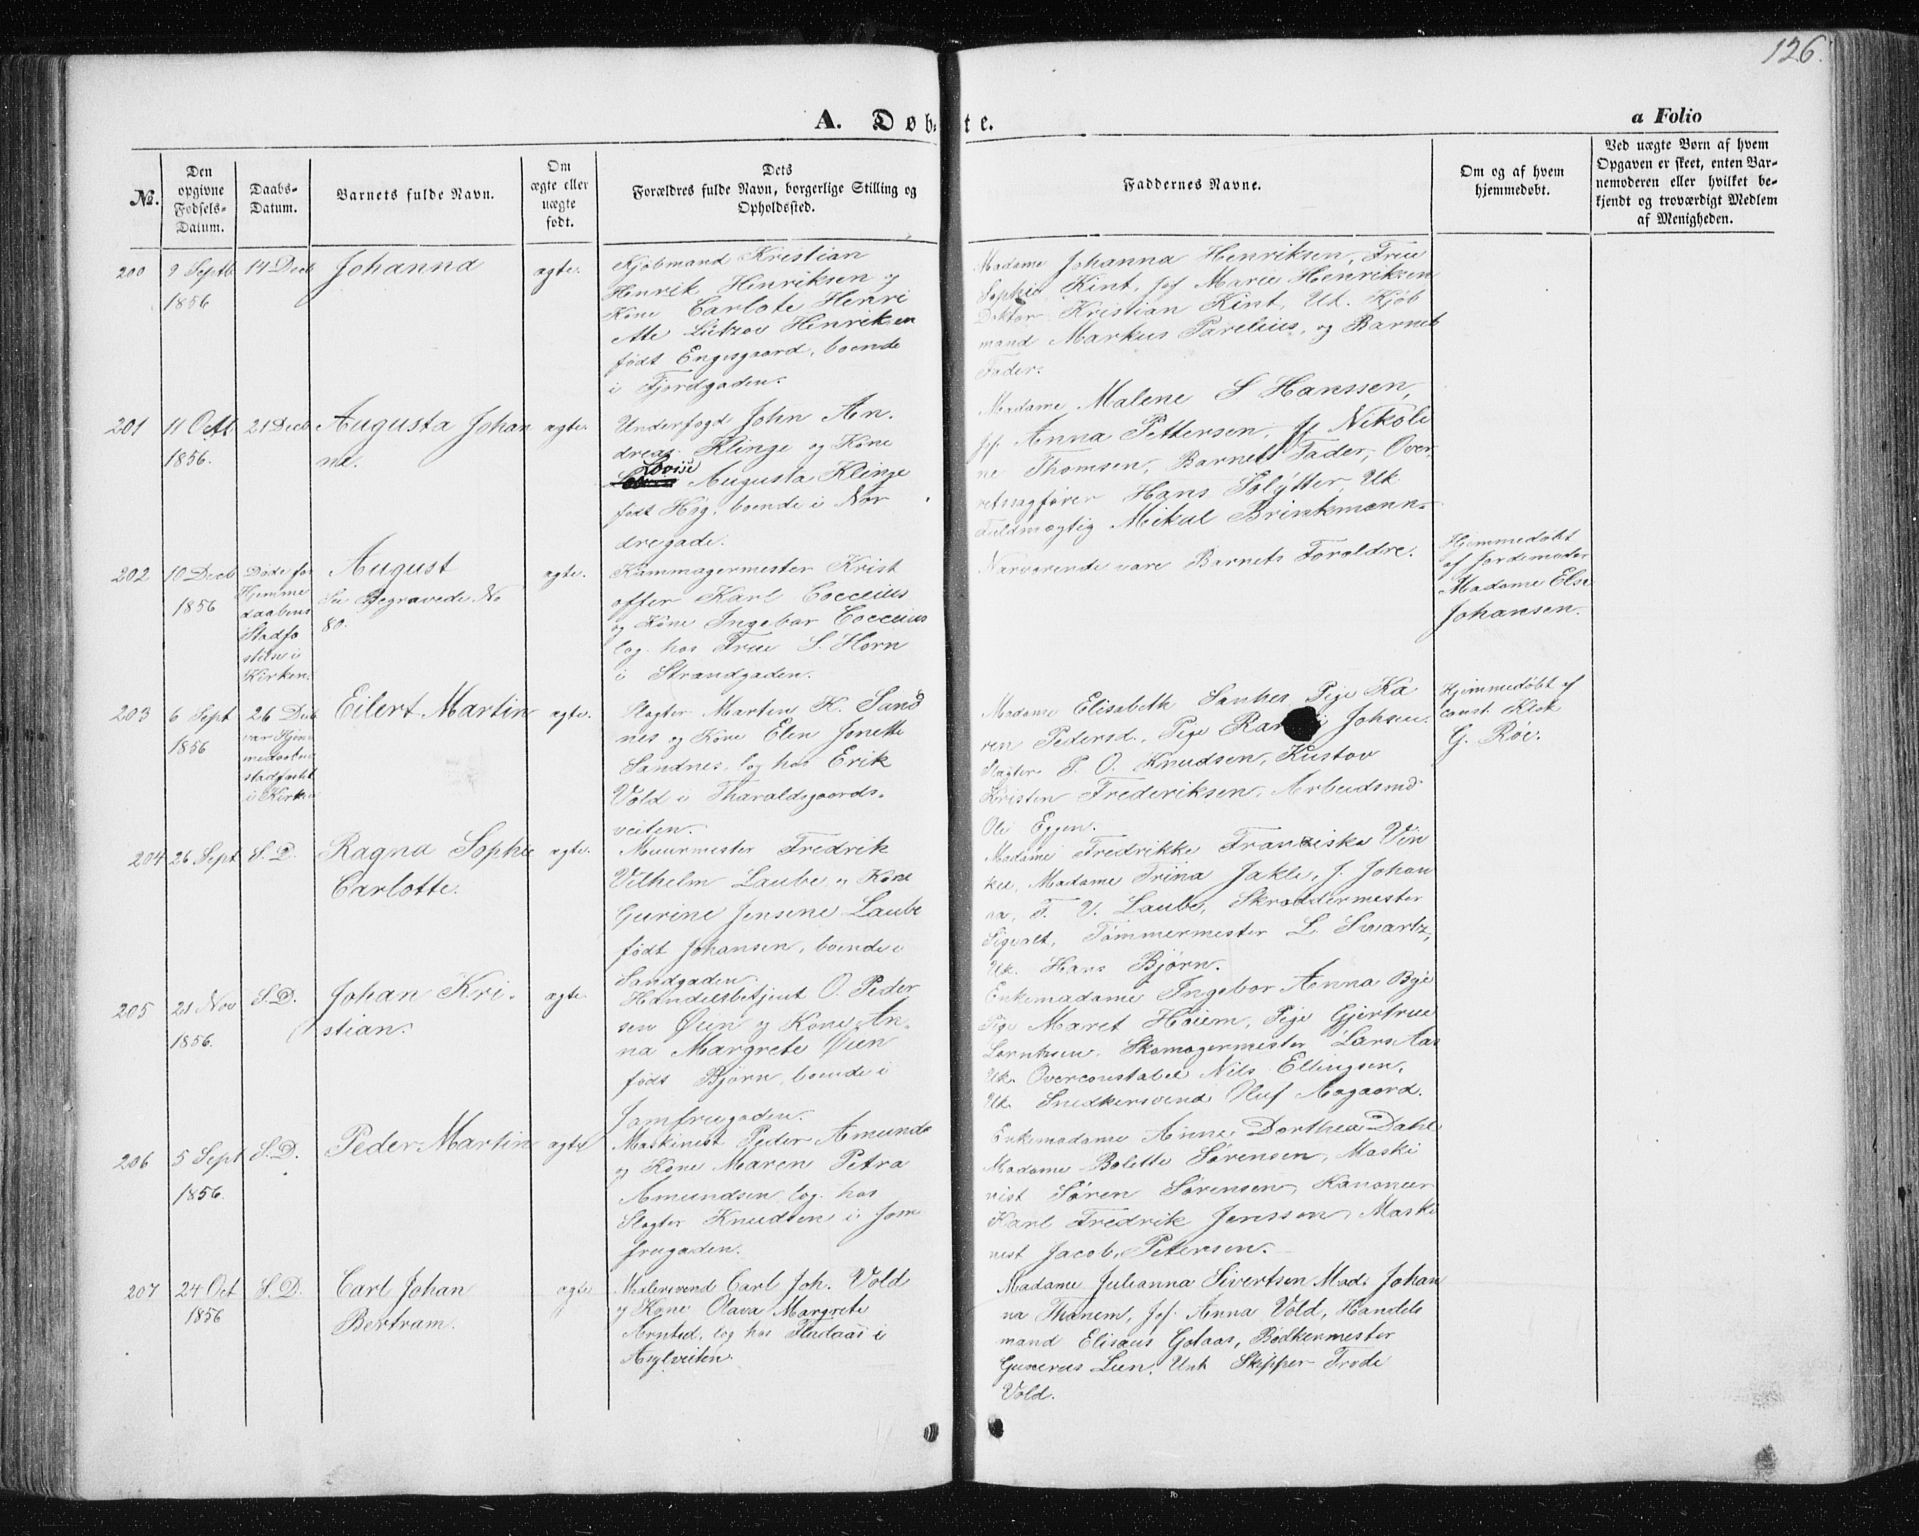 126.
A. Døbte.
a Folio
No.
Den opgivne Fødsels-Datum.
Daabs-Datum.
Barnets fulde Navn.
Om ægte eller uægte født.
Dets Forældres fulde Navn, borgerlige Stilling og Opholdssted.
Faddernes Navne.
Om og af hvem hjemmedøbt.
Ved uægte Børn af hvem Opgaven er skeet, enten Barnemoderen eller hvilket bekjendt og troværdigt Medlem af Menigheden.
200
9 Septb
1856
14 Decb
Johanna
ægte.
Kjøbmand Kristian
Henrik Henriksen og
Kone Carlote Henri
ette Lützov Hinriksen
født Engesgaard, boende
i Fjordgaden.
Madame Johanna Henriksen, Frue
Sophie Kint, Jf Marie Henriksen
Doktor Kristian Kint, Uk. Kjøb
mand Markus Parelius, og Barnets
Fader.
201
11 Oct
1856.
21 Decb
Augusta Johan
ne.
ægte.
Underfogd John An-
dreas Klinge og Kone
Lovise Augusta Klinge
født Høg, boende i Nor
dregade.
Madame Malene S Hanssen,
jf. Anna Pettersen, jf Nikoli
ne Thomsen, Barnets Fader, Over
retssagfører Hans Solÿtter, Uk
Fuldmægtig Mikal Brinkmann.
202
10 Decb
1856
Døde før
Hjemme
daabens
Stadfæ
stelse i
Kirken.
August
Se Begravede No
80.
ægte.
Kammagermester Krist
offer Karl Cocceius
og Kone Ingebor Cocceius
log. hos Frue S. Horn
i Strandgaden.
Nærværende vare Barnets Forældre.
Hjemmedøbt
af Jordemoder
Madame Else
Johansen.
203
6 Sept
1856
26 Decb
var Hjem
medaaben
stadfæstet
i Kirken
Eilert Martin
ægte.
Slagter Marten K. Sand
nes og Kone Elen Jonette
Sandnes, log hos Erik
Vold i Tharaldsgaards-
veiten.
Madame Elisabeth Sanhes, Pige Ka
ren Pedersd., Pige Johsen.
Slagter P. O. Knudsen, Kustov
Kristen Frederiksen, Arbeidsmd
Ole Eggen.
Hjemmedøbt af
const. Klok
G. Røe.
204
26 Sept
S. D.
Ragna Sophie
Carlotte.
ægte.
Muurmester Fredrik
Vilhelm Laube og Kone
Gurine Jensine Laube
født Johansen, boende i
Sandgaden.
Madame Fredrikke Franciska Vin
kel, Madame Trina Jakle, J. Johan
na, F. V. Laube, Skræddermester
Sigvalt, Tømmermester L. Svartz,
Uk. Hans Bjørn.
205
21 Nov
1856.
S. D.
Johan Kri-
stian.
ægte.
Handelsbetjent O. Peder
sen Øien og Kone An-
na Margrete Øien
født Bjørn, boende i
Jomfrugaden.
Enkemadame Ingebor Anna Bye
Pige Maret Høiem, Pige Gjertrue
Lorntsen. Skomagermester Lars Aas
Uk. Overconstabel Nils Ellingsen,
Uk. Snedkersvend Oluf Aagaard.
206
5 Sept
1856.
S. D.
Peder Martin
ægte
Maskinist Peder Amunds
og Kone Maren Petra
Amundsen, log. hos
Slagter Knudsen i Jom
frugaden.
Enkemadame Anne Dorthea Dahl
Madame Bolette Sørensen, Maski
nist Søren Sørensen, Kanoneer
Karl Fredrik Jenssen, Maski
nist Jacob, Petersen.
207
24 Oct
1856
S. D.
Carl Johan
Bertram.
ægte
Malersvend Carl Joh. Vold
og Kone Olava Margrete
Arnsted, log hos Fludaas i
Asylveiten.
Madame Julianna Sivertsen Mad. Johan
na Thanem, Jof. Anna Vold, Handels
mand Elisæus Golaas, Bødkermester
Gunerus Lien, Unt Skipper Frode
Vold.